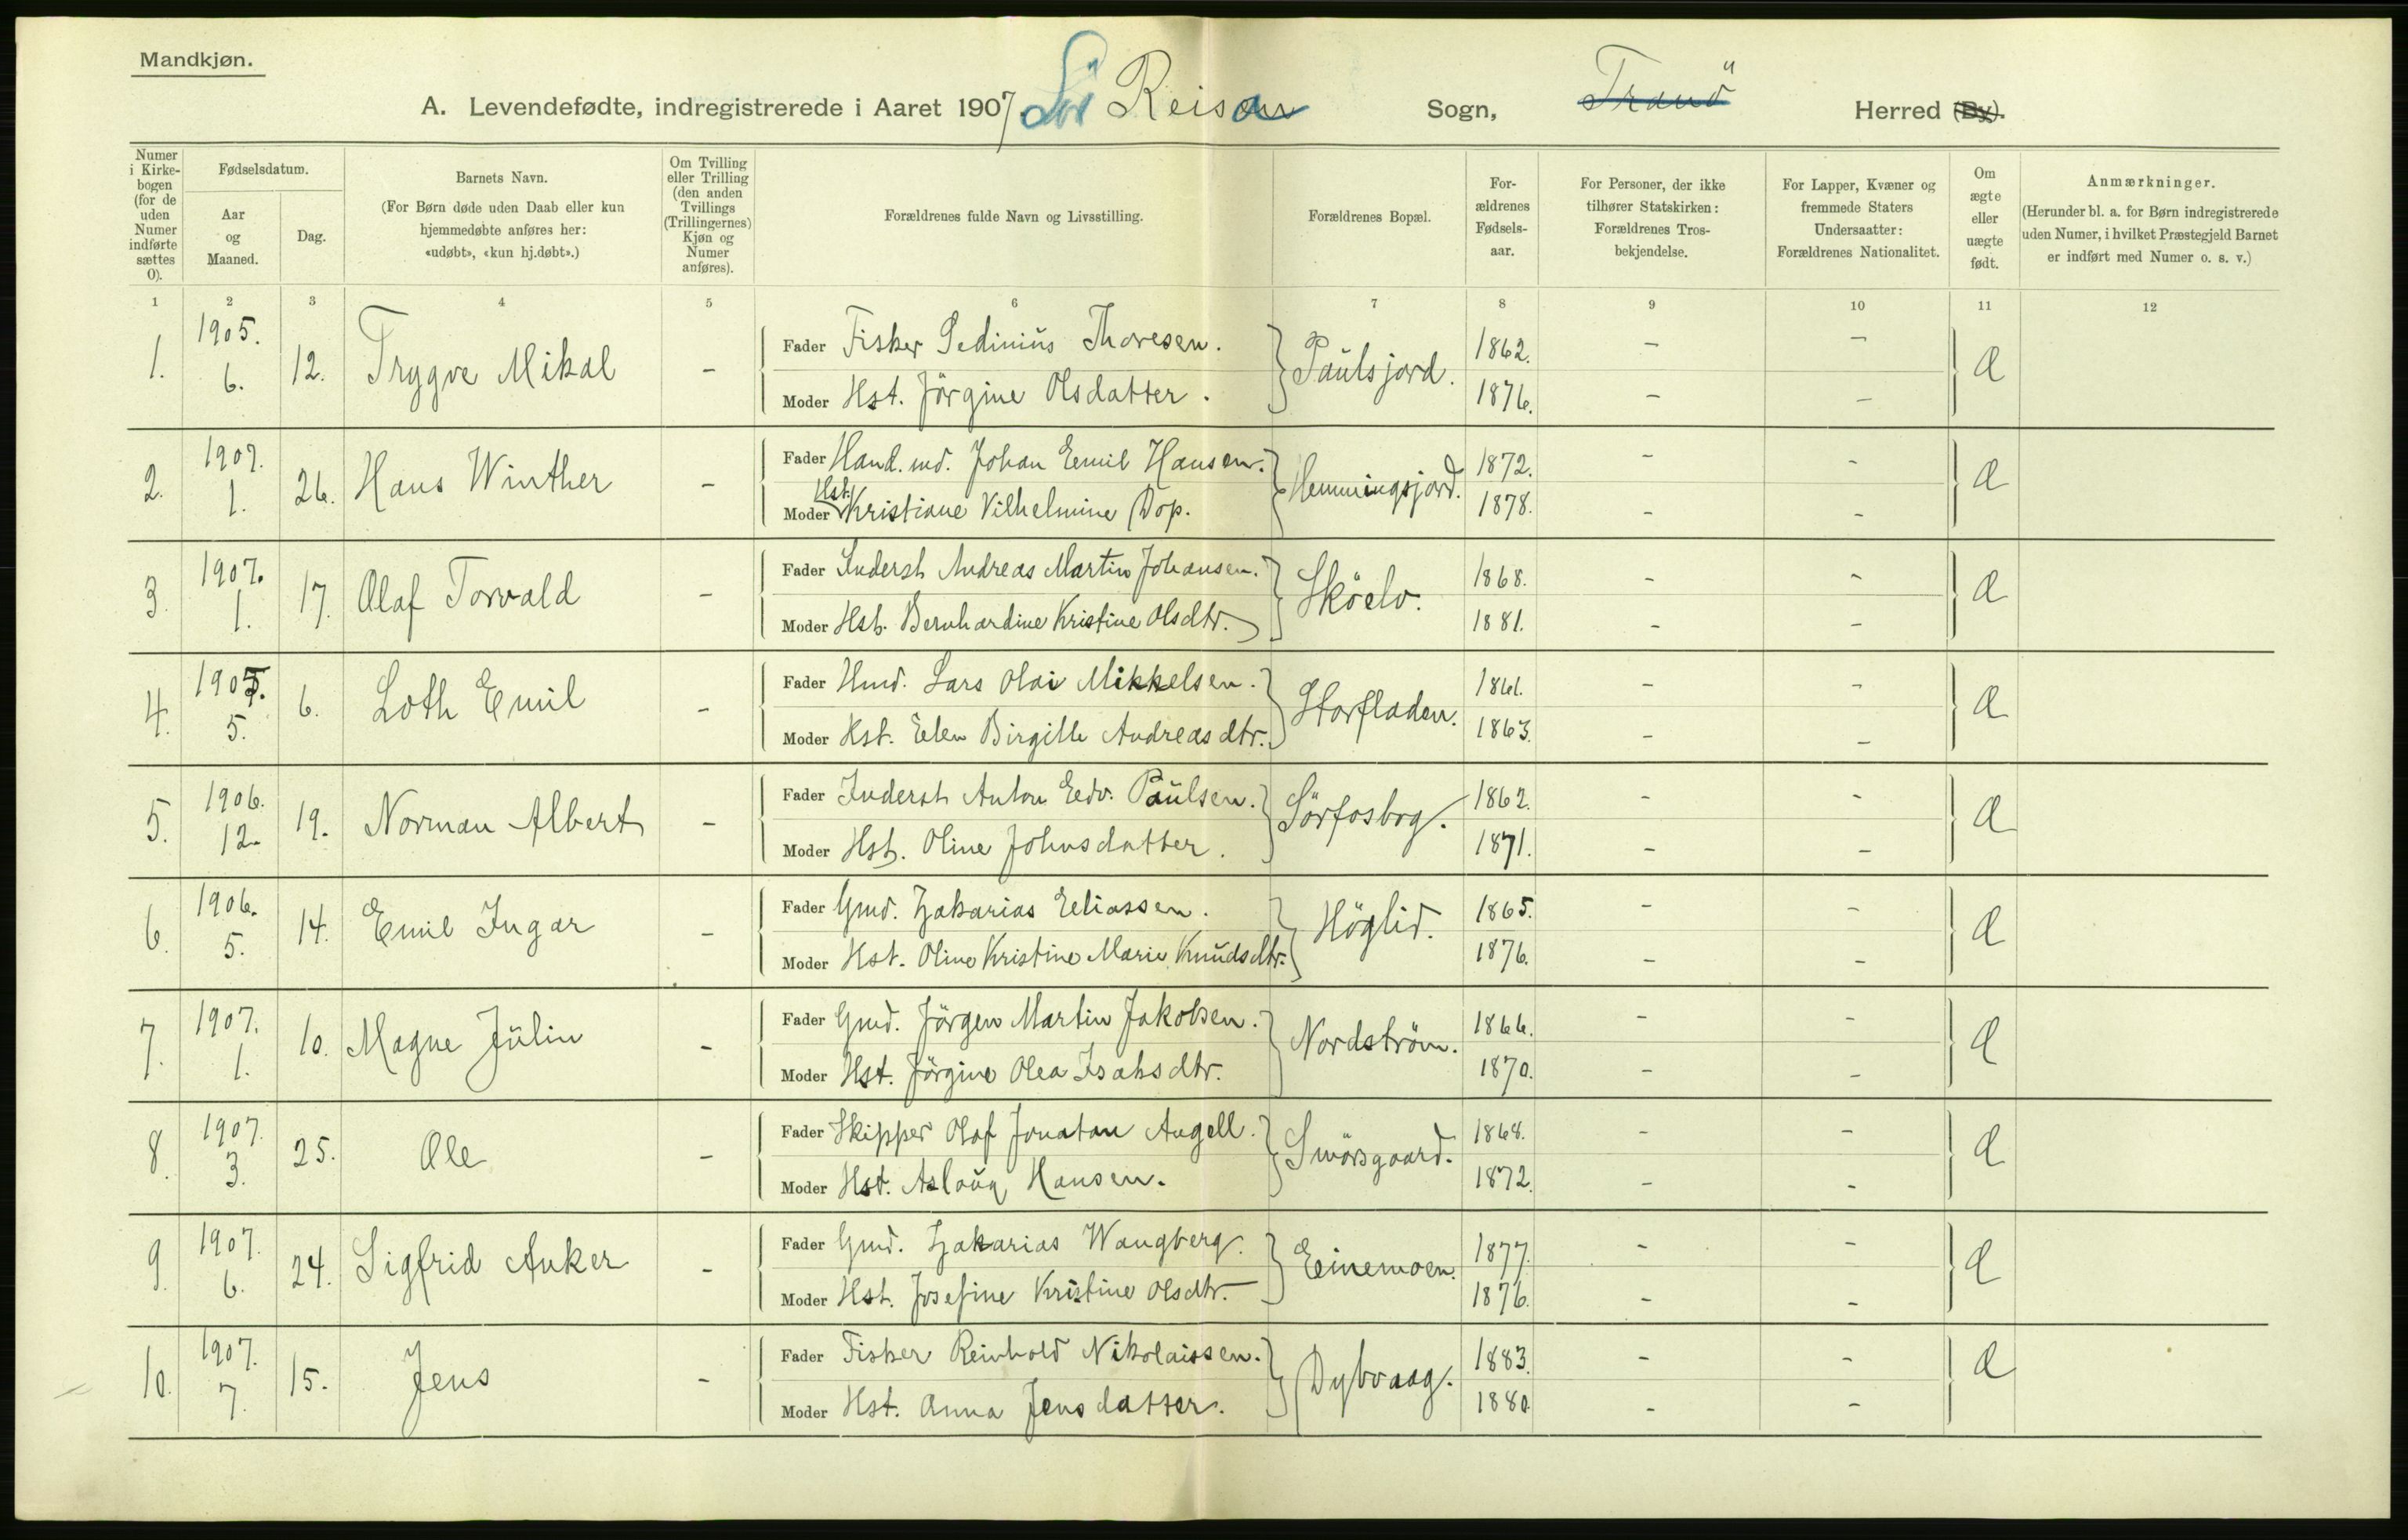 Mandkjøn.
A. Levendefødte, indregistrerede i Aaret 1907 Sör Reisen Sogn, Tranö Herred (By).
Numer i Kirkebogen (for de uden Numer indførte sættes 0).
Fødselsdatum.
Aar og Maaned.
Dag.
Barnets Navn.
(For Børn døde uden Daab eller kun hjemmedøbte anføres her: «udøbt», «kun hj.døbt».)
Om Tvilling eller Trilling (den anden Tvillings (Trillingernes) Kjøn og Numer anføres).
Forældrenes fulde Navn og Livsstilling.
Forældrenes Bopæl.
For-ældrenes Fødsels-aar.
For Personer, der ikke tilhører Statskirken: Forældrenes Tros-bekjendelse.
For Lapper, Kvæner og fremmede Staters Undersaatter: Forældrenes Nationalitet.
Om ægte eller uægte født.
Anmærkninger.
(Herunder bl. a. for Børn indregistrerede uden Numer, i hvilket Præstegjeld Barnet er indført med Numer o. s. v.)
1 2 3 4 5 6 7 8 9 10 11 12
1. 1905. 6. 12. Trygve Mikal - Fader Fisker Pedinius Thoresen. Paulsjord. 1862. - - Æ
Moder Hst. Jörgine Olsdatter. 1876. - -
2. 1907. 1. 26. Hans Winther - Fader Hand.md. Johan Emil Hansen. Hemmingsjord. 1872. - - Æ
Moder Hst. Kristiane Vilhelmine Dop. 1878. - -
3. 1907. 1. 17. Olaf Torvald - Fader Inderst Andreas Martin Johansen. Sköelv. 1868. - - Æ
Moder Hst. Bernhardine Kristine Olsdtr. 1881. - -
4. 1905. 5. 6. Loth Emil - Fader Hmd. Lars Olai Mikkelsen. Storfladen. 1861. - - Æ
Moder Hst. Elen Birgitte Andreasdtr. 1863. - -
5. 1906. 12. 19. Norman Albert - Fader Inderst Anton Edv. Paulsen. Sörfosbog. 1862. - - Æ
Moder Hst. Oline Johnsdatter. 1871. - -
6. 1906. 5. 14. Emil Ingar - Fader Gmd. Zakarias Eliassen. Höglid. 1865. - - Æ
Moder Hst. Oline Kristine Marie Knudsdtr. 1876. - -
7. 1907. 1. 10. Magne Julin - Fader Gmd. Jörgen Martin Jakobsen. Nordström. 1866. - - Æ
Moder Hst. Jörgine Olea Isaksdtr. 1870. - -
8. 1907. 3. 25. Ole - Fader Skipper Olaf Jonatan Angell. Smörsgaard. 1868. - - Æ
Moder Hst. Aslaug Hansen. 1872. - -
9. 1907. 6. 24. Sigfrid Anker - Fader Gmd. Zakarias Wangberg. Einemoen. 1877. - - Æ
Moder Hst. Josefine Kristine Olsdtr. 1876. - -
10. 1907. 7. 15. Jens - Fader Fisker Reinhold Nikolaissen. Dybvaag. 1883. - - Æ
Moder Hst. Anna Jensdatter. 1880. - -